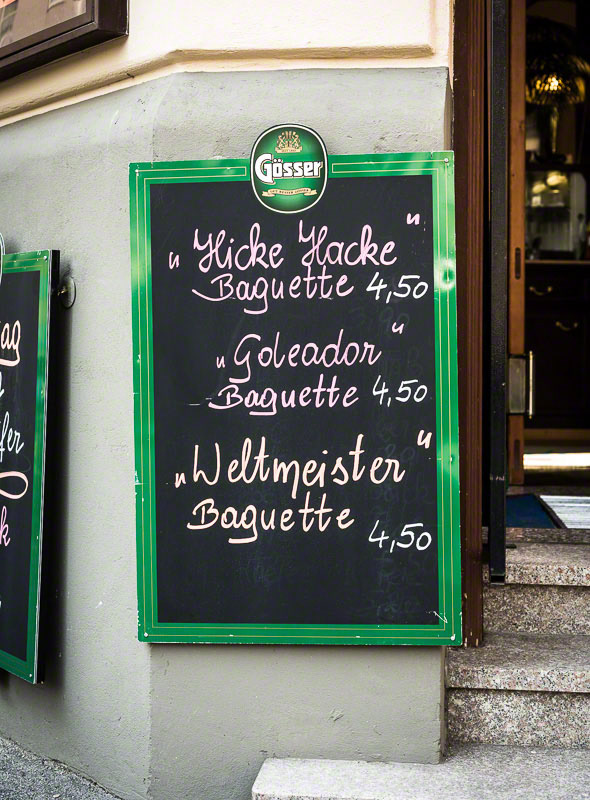 Gösser
„Hicke Hacke"
Baguette 4,50
„Goleador"
Baguette 4,50
„Weltmeister"
Baguette
4,50